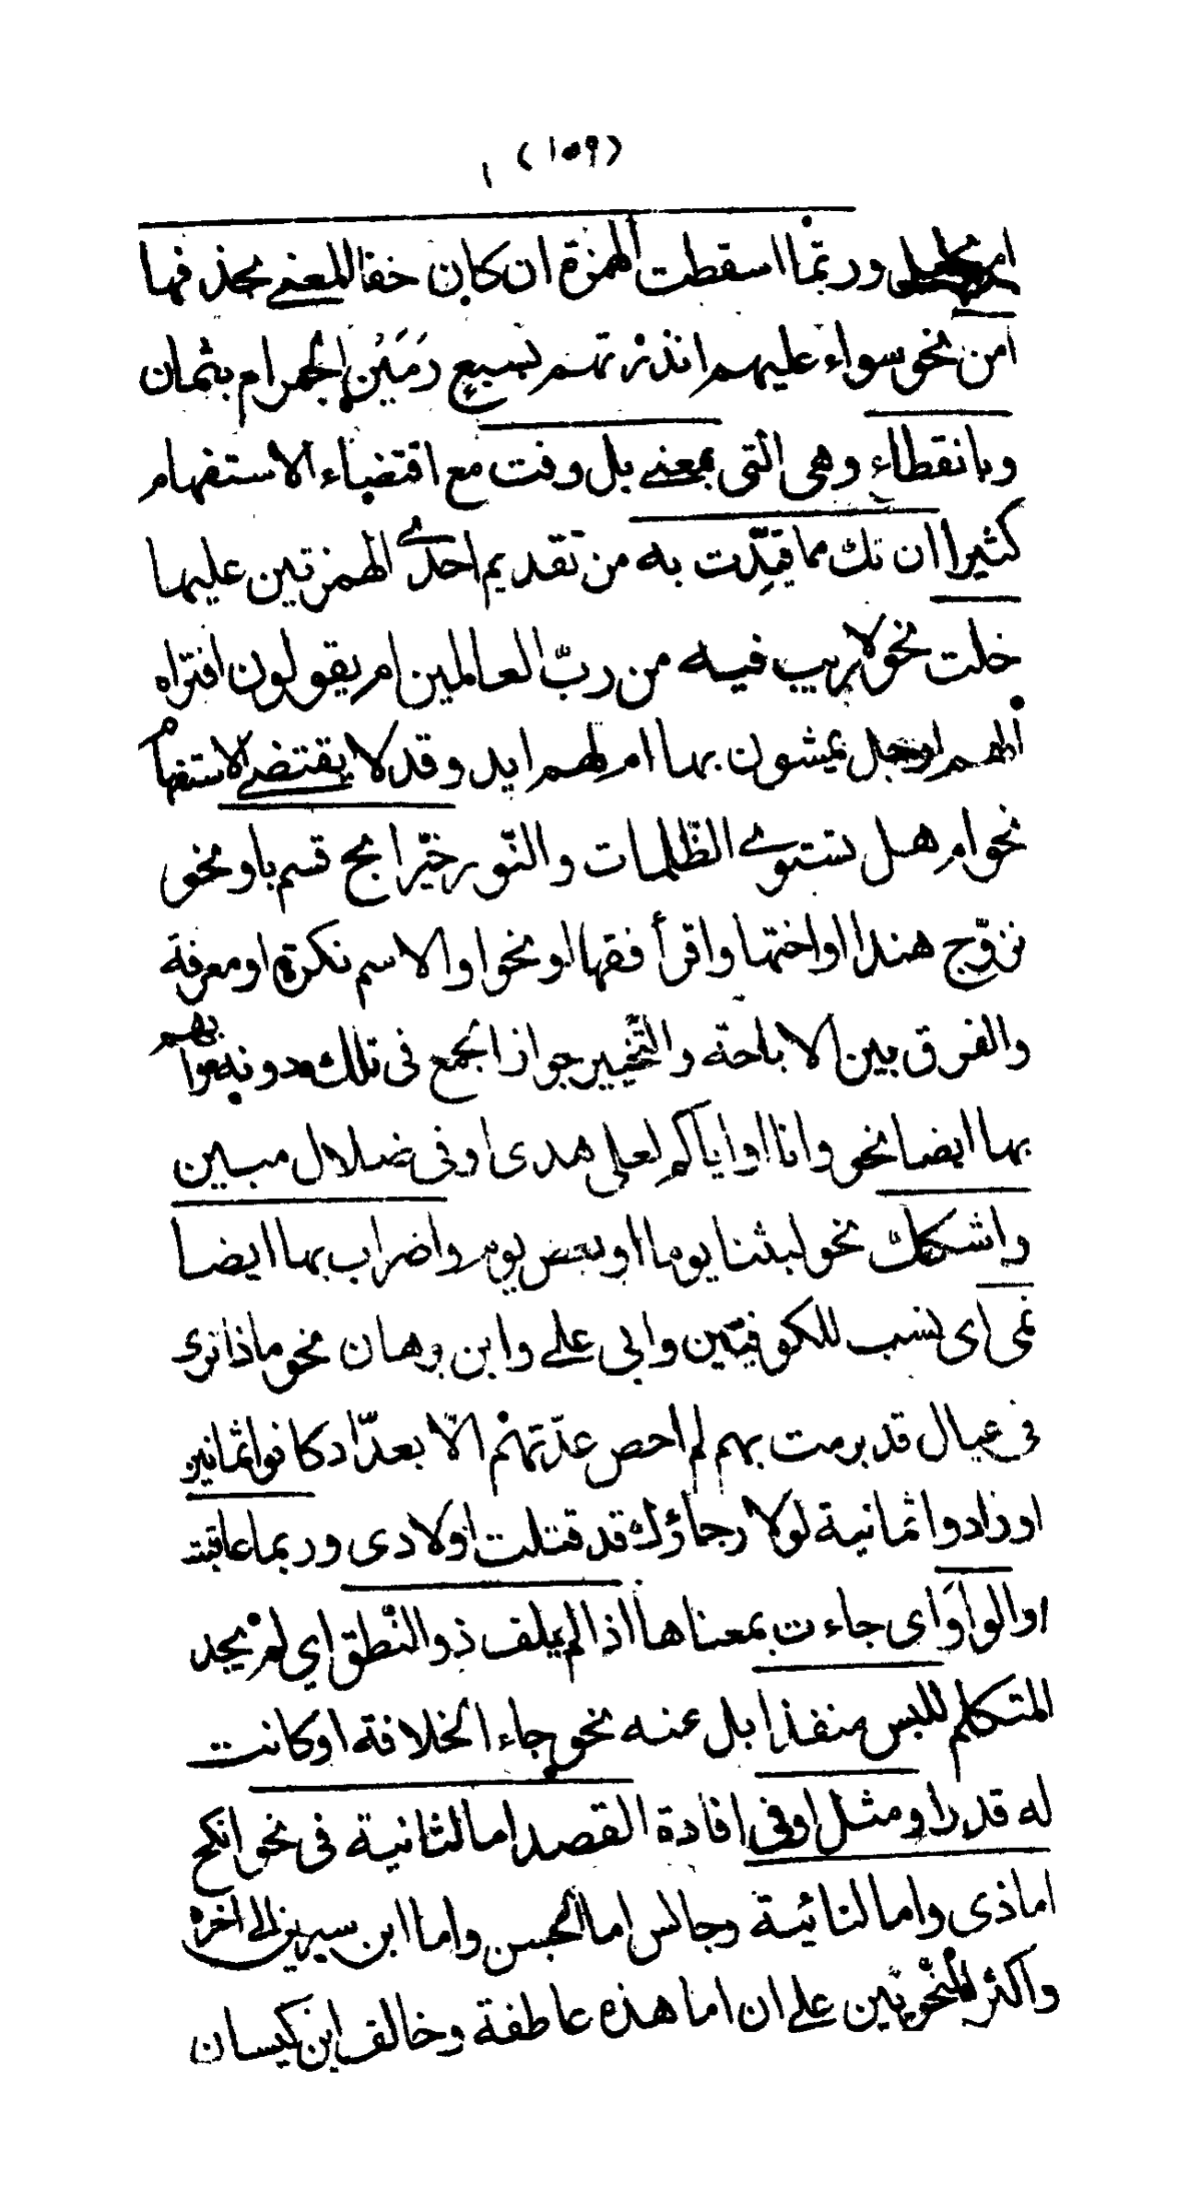 (١٥٩) ١
ام وربّما اسقطت الهمزة ان كان خفا المعنى بحذفها
امن نحو سواء عليهم انذرتهم بسبعٍ رمَيْن الجمر ام بثمان
وبانقطاع وهى التى بمعنى بل وفت مع اقتضاء الاستفهام
كثيرا ان تك مما قيّدت به من تقديم احدى الهمزتين عليها
خلت نحو لا ريب فيه من ربّ العالمين ام يقولون افتراه
ألهم ارجل يمشون بها ام لهم ايد وقد لا يقتضى الاستفهام
نحو ام هل تستوى الظّلمات والنّور خيّر ابح قسم باو نحو
تزوّج هندا او اختها واقرأ فقها او نحوا والاسم نكرة او معرفة
والفرق بين الاباحة والتّخيير جواز الجمع فى تلك دونه وابهم
بها ايضا نحو وانا او اياكم لعلى هدى او فى ضلال مبين
واشكك نحو لبثنا يوما او بعض يوم واضراب بها ايضا
نمى اى نسب للكوفيّين وابى على وابن برهان نحو ماذا ترى
فى عيال قد برمت بهم لم احص عدّتهمْ الّا بعدّاد كانوا ثمانين
او زادوا ثمانية لولا رجاؤك قد قتلت اولادى وربما عاقبت
او الواوَ اى جاءت بمعناها اذا لم يلف ذو النّطق اى لم يجد
المتكلم للبس منفذا بل عنه نحو جاء الخلافة او كانت
له قدرا ومثل او فى افادة القصد اما الثانية فى نحو انكح
اما ذى واما النائية وجالس اما الحسن واما ابن سيرين الى آخره
واكثر النّحويّين على ان اما هذه عاطفة وخالف ابن كيسان